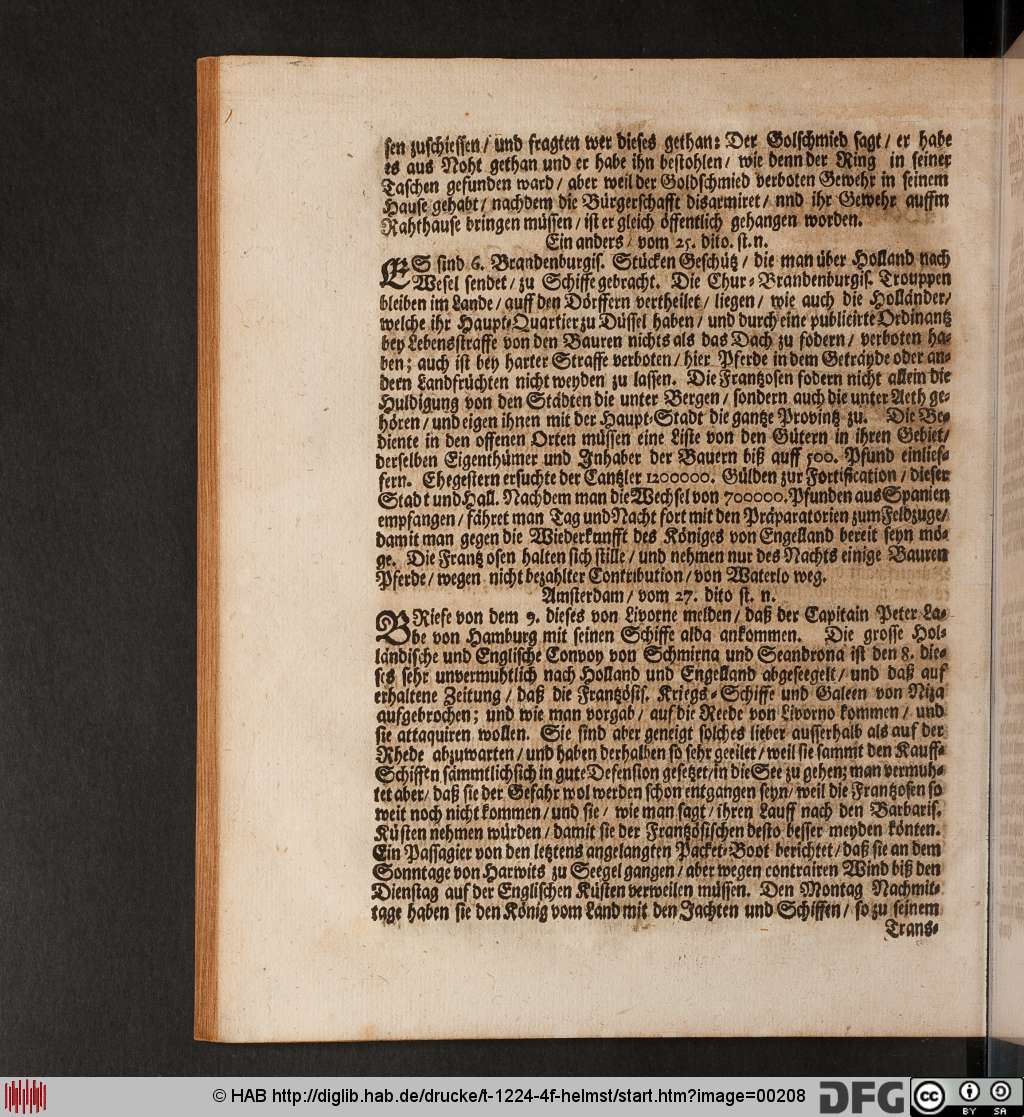 sen zuschiessen / und fragten wer dieses gethan: Der Golschmied sagt / er habe
es aus Noht gethan und er habe ihn bestohlen / wie denn der Ring in seiner
Taschen gefunden ward / aber weil der Goldschmied verboten Gewehr in seinem
Hause gehabt / nachdem die Bürgerschafft disarmiret / nnd ihr Gewehr auffm
Rahthause bringen müssen / ist er gleich öffentlich gehangen worden.
Ein anders / vom 25. dito. st. n.
ES sind 6. Brandenburgis. Stücken Geschütz / die man über Holland nach
Wesel sendet / zu Schiffe gebracht. Die Chur-Brandenburgis. Trouppen
bleiben im Lande / auff den Dörffern vertheilet / liegen / wie auch die Holländer /
welche ihr Haupt-Quartier zu Düssel haben / und durch eine publicirte Ordinantz
bey Lebensstraffe von den Bauren nichts als das Dach zu fodern / verboten ha-
ben; auch ist bey harter Straffe verboten / hier Pferde in dem Geträyde oder an-
dern Landfrüchten nicht weyden zu lassen. Die Frantzosen fodern nicht allein die
Huldigung von den Städten die unter Bergen / sondern auch die unter Aeth ge-
hören / und eigen ihnen mit der Haupt-Stadt die gantze Provintz zu. Die Be-
diente in den offenen Orten müssen eine Liste von den Gütern in ihren Gebiet /
derselben Eigenthümer und Inhaber der Bauern biß auff 500. Pfund einlief-
fern. Ehegestern ersuchte der Cantzler 1200000. Gülden zur Fortification / dieser
Stadt und Hall. Nachdem man die Wechsel von 700000. Pfunden aus Spanien
empfangen / fähret man Tag und Nacht fort mit den Präparatorien zum Feldzuge /
damit man gegen die Wiederkunfft des Königes von Engelland bereit seyn mö-
ge. Die Frantzosen halten sich stille / und nehmen nur des Nachts einige Bauren
Pferde / wegen nicht bezahlter Contribution / von Waterlo weg.
Amsterdam / vom 27. dito st. n.
BRiefe von dem 9. dieses von Livorne melden / daß der Capitain Peter La-
be von Hamburg mit seinen Schiffe alda ankommen. Die grosse Hol-
ländische und Englische Convoy von Schmirna und Seandrona ist den 8. die-
ses sehr unvermuhtlich nach Holland und Engelland abgeseegelt / und daß auf
erhaltene Zeitung / daß die Frantzösis. Kriegs-Schiffe und Galeen von Niza
aufgebrochen; und wie man vorgab / auf die Reede von Livorno kommen / und
sie attaquiren wollen. Sie sind aber geneigt solches lieber ausserhalb als auf der
Rhede abzuwarten / und haben derhalben so sehr geeilet / weil sie sammt den Kauff-
Schiffen sämmtlich sich in gute Defension gesetzet / in die See zu gehen; man vermuh-
tet aber / daß sie der Gefahr wol werden schon entgangen seyn / weil die Frantzosen so
weit noch nicht kommen / und sie / wie man sagt / ihren Lauff nach den Barbaris.
Küsten nehmen würden / damit sie der Frantzösischen desto besser meyden könten.
Ein Passagier von den letztens angelangten Packet-Boot berichtet / daß sie an dem
Sonntage von Harwits zu Seegel gangen / aber wegen contrairen Wind biß den
Dienstag auf der Englischen Küsten verweilen müssen. Den Montag Nachmit-
tage haben sie den König vom Land mit den Jachten und Schiffen / so zu seinem
Trans-
© HAB http://diglib.hab.de/drucke/t-1224-4f-helmst/start.htm?image=00208
DFG
cc
BY SA